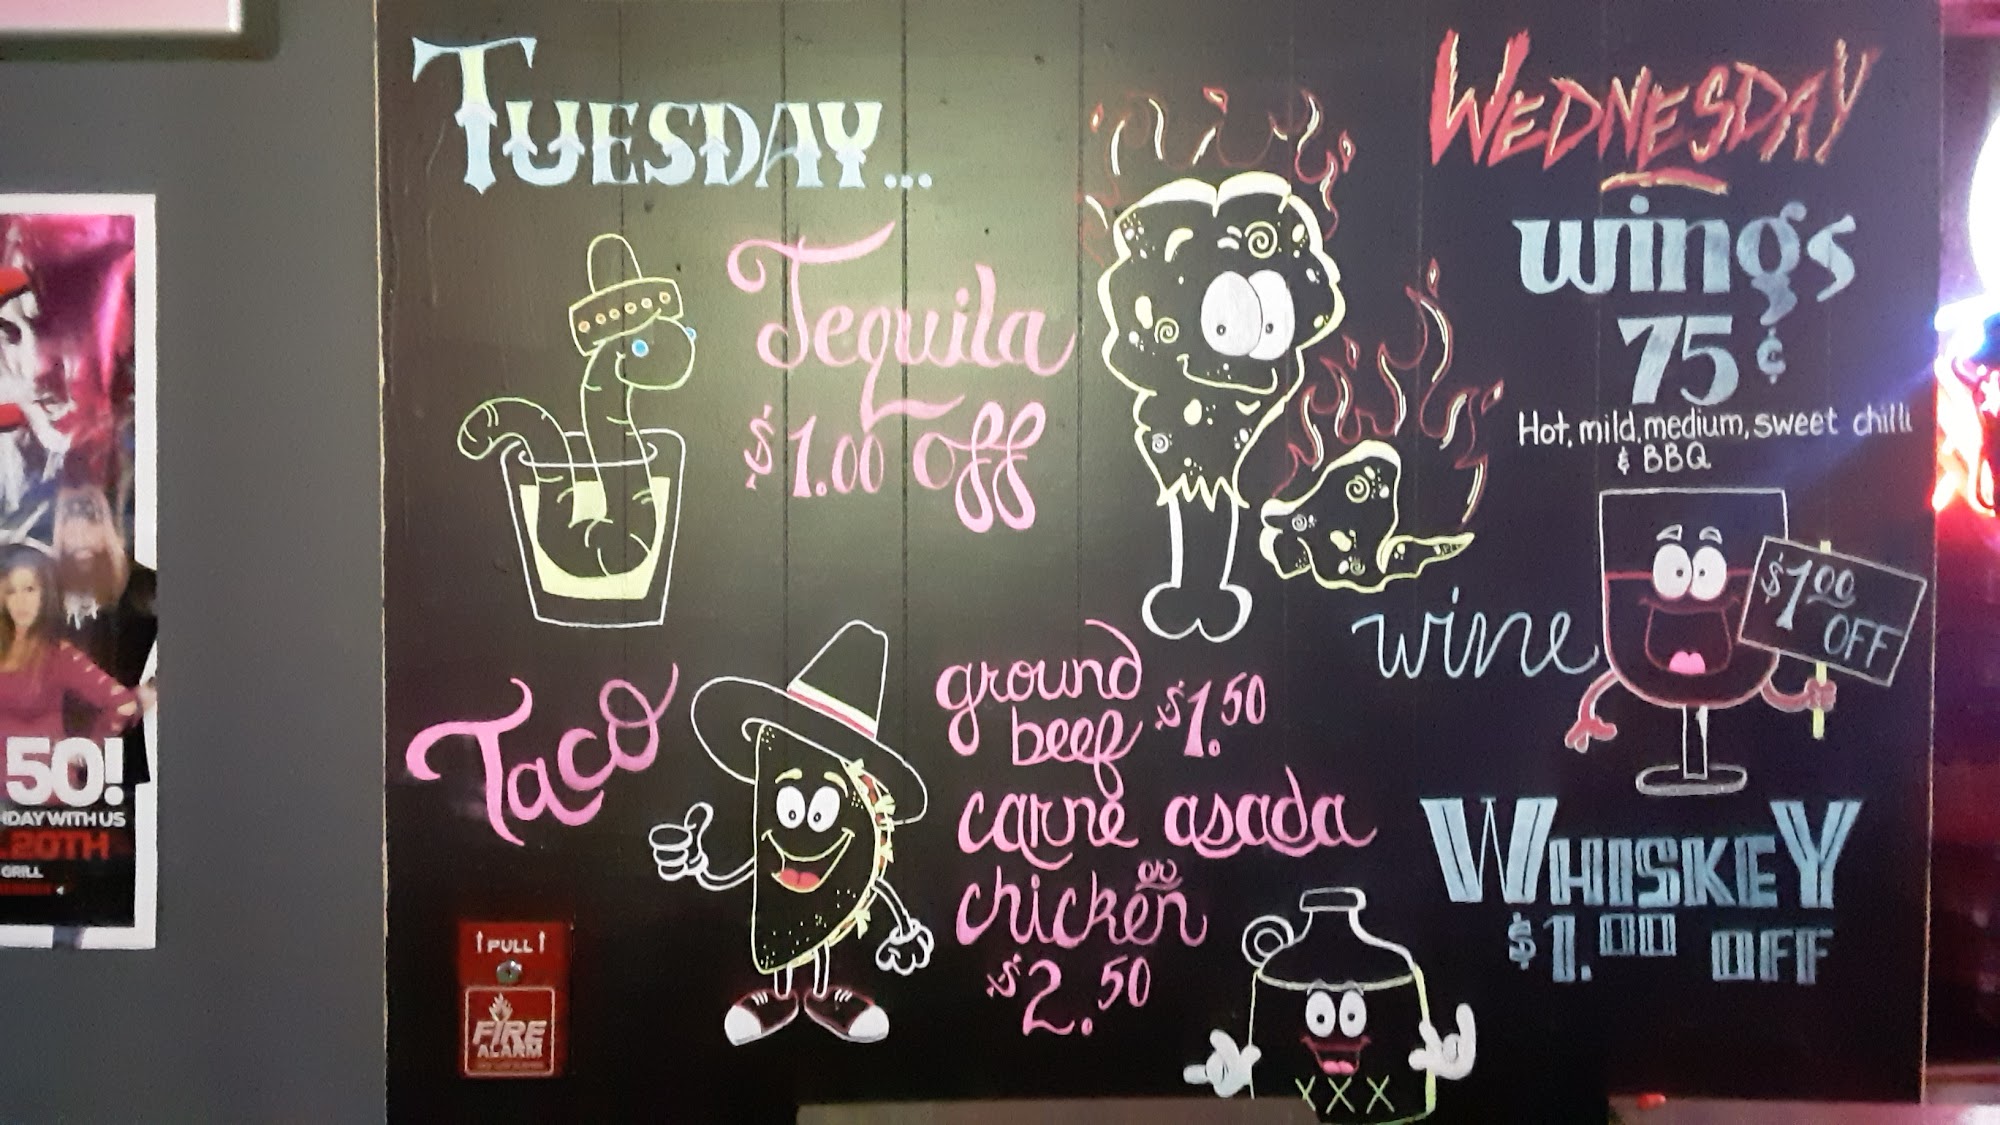 TUESDAY...
Tequila
$1.00 off
Taco
ground
beef $1.50
carne asada
or
chicken
$2.50
WEDNESDAY
wings
75¢
Hot, mild, medium, sweet chilli
& BBQ
wine
$1.00
OFF
WHISKEY
$1.00 OFF
XXX
PULL
FIRE
ALARM
50!
DAY WITH US
20TH
GRILL